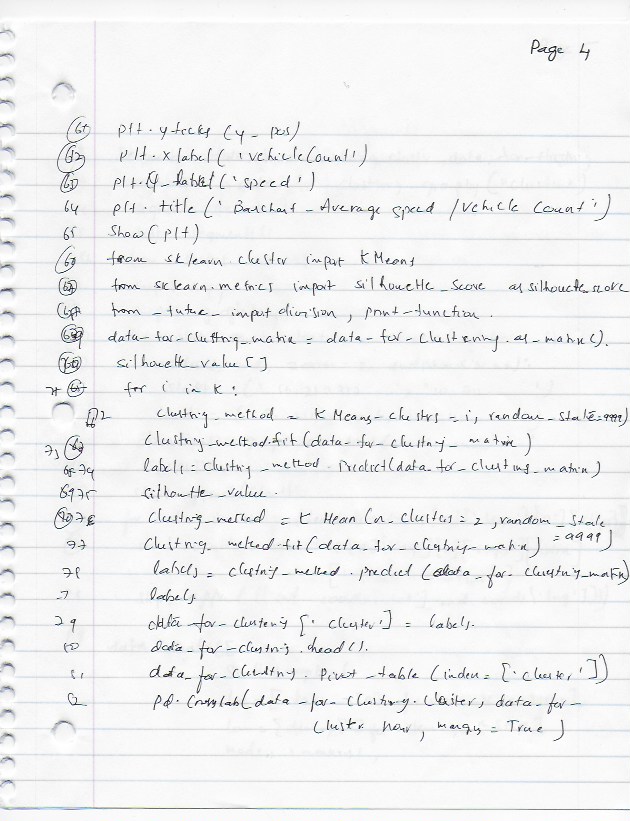 Page 4
plt. yticks (y - pos)
62 plt. xlabel ( 'vehicleCount')
plt. ('speed')
64 plt. title (' Barchart - Average speed / vehicle count')
65 Show( plt)
from sklearn. cluster import KMeans
from sklearn.metrics import silhouette_score as silhouette_score
from - - import division, print-function.
data-for-clusting-matrix = data-for-clustering. as-matrix().
silhouette_value [ ]
71 for i in K:
72 clusting_method = KMeans- clusters = i, random_state=9999)
73 clusting_method.fit (data-for-clusting_ matrix)
74 labels = clusting_method . Predict(data_for_clusting_matrix)
75 silhouette_value .
76 clusting_method = K Mean (n_clusters = 2 , random_State
= 9999)
77 Clusting_method.fit(data_for_clusting_matrix)
78 labels = clusting_method . predict (data_for_clusting_matrix)
7 labels.
79 data-for-clustering ['cluster'] = labels.
80 data_for-clusting. head().
81 data_for_clusting. Pivot_table (index = ['cluster'])
82 pd. Crosstab(data -for- clusting. Cluster, data-for-
Cluster hour, margins = True)